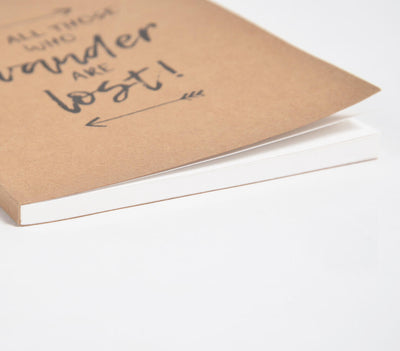 ALL THOSE
WHO
wander
ARE
lost!